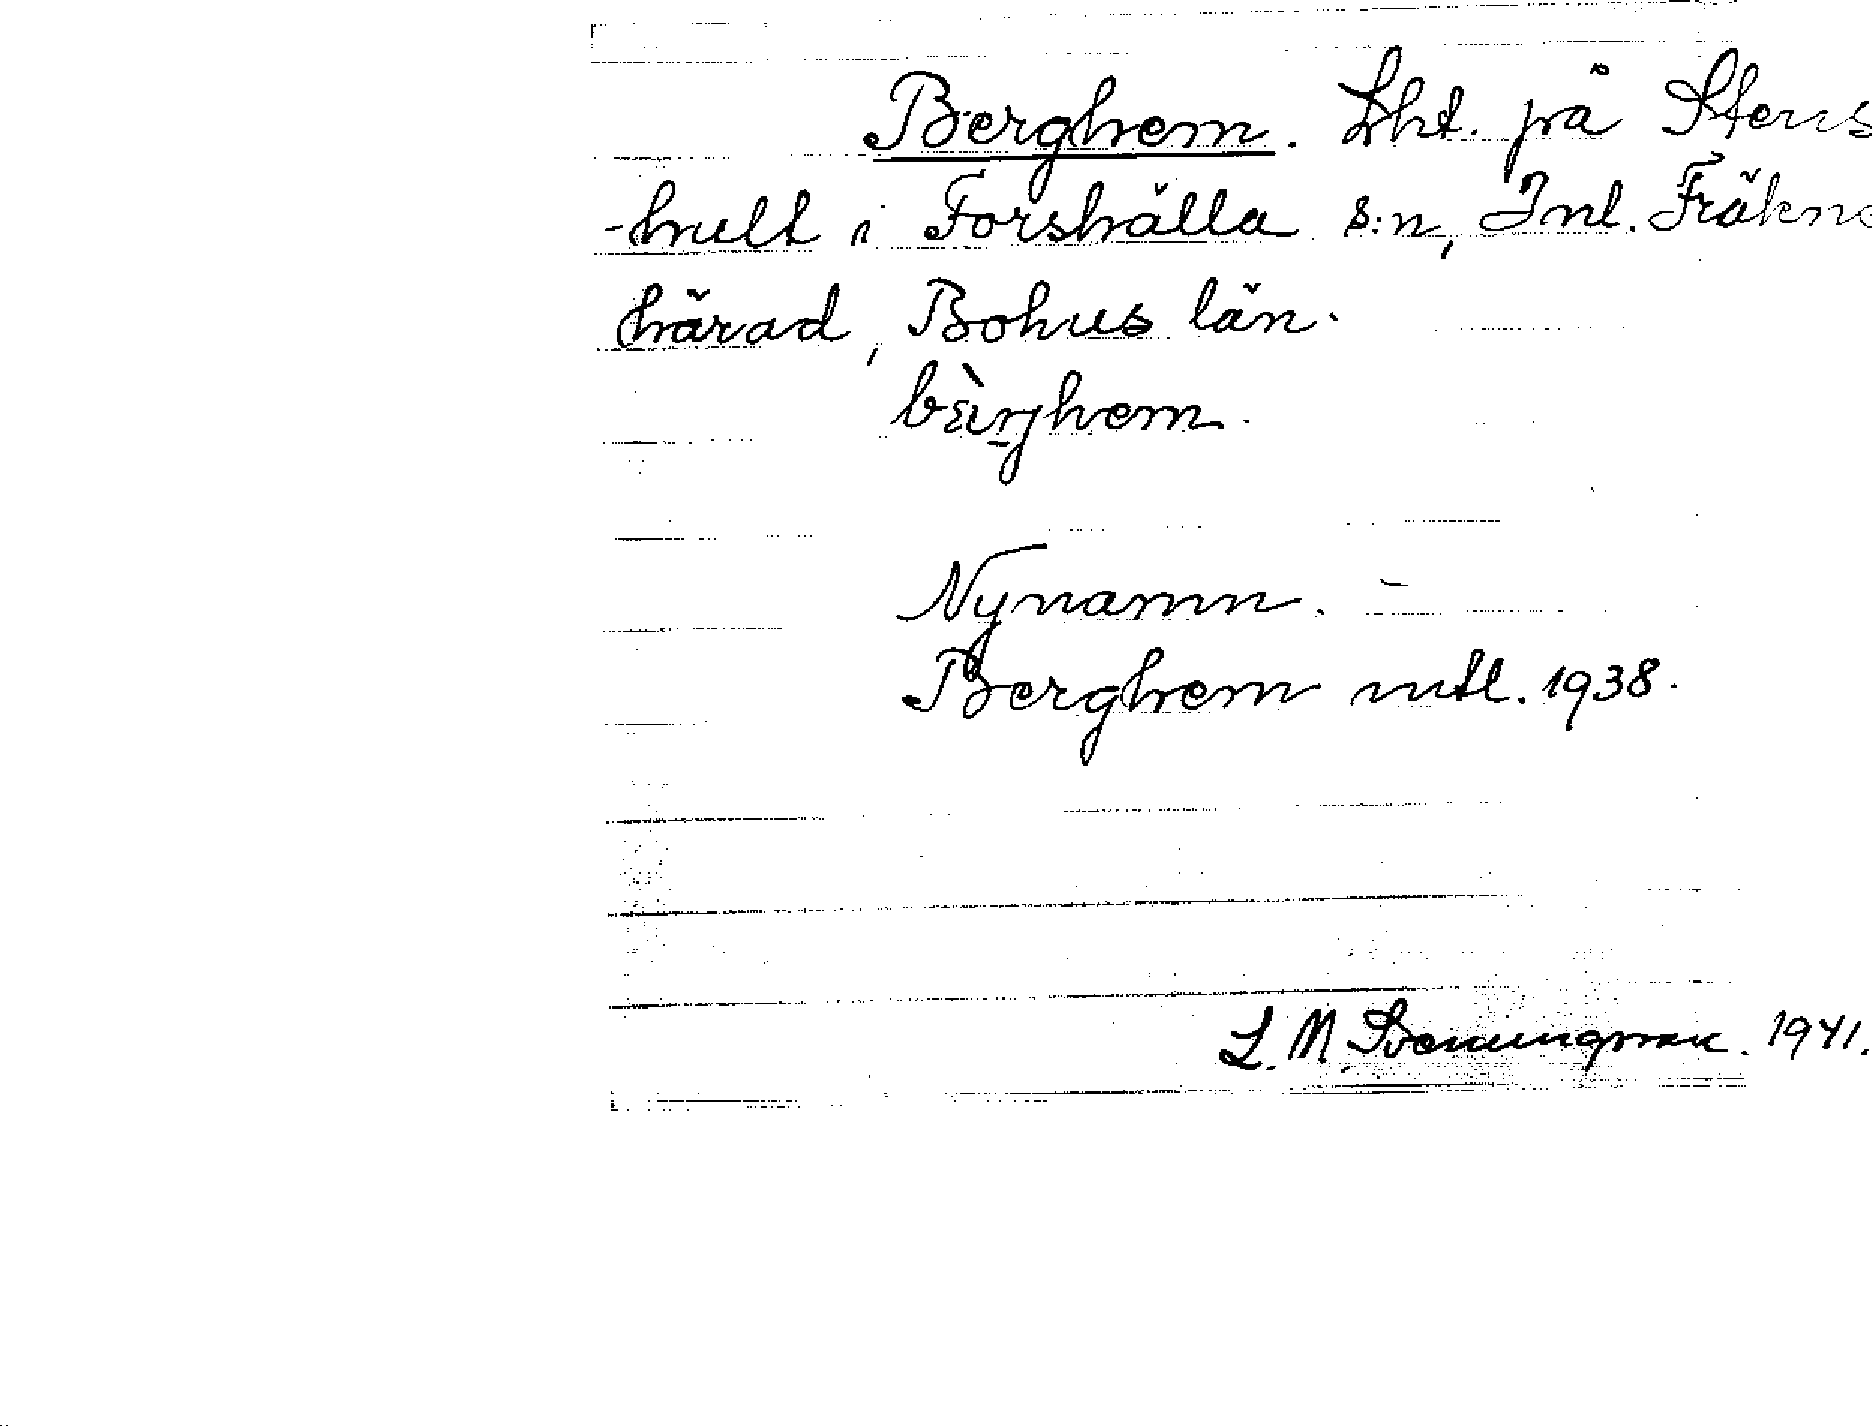 Berghem. Lht. på Stens
-hult i Forshälla s:n, Inl. Fräkne
härad, Bohus län.
bæ̀rjhem.
Nynamn.
Berghem mtl. 1938.
L. M. Svenungsson. 1941.